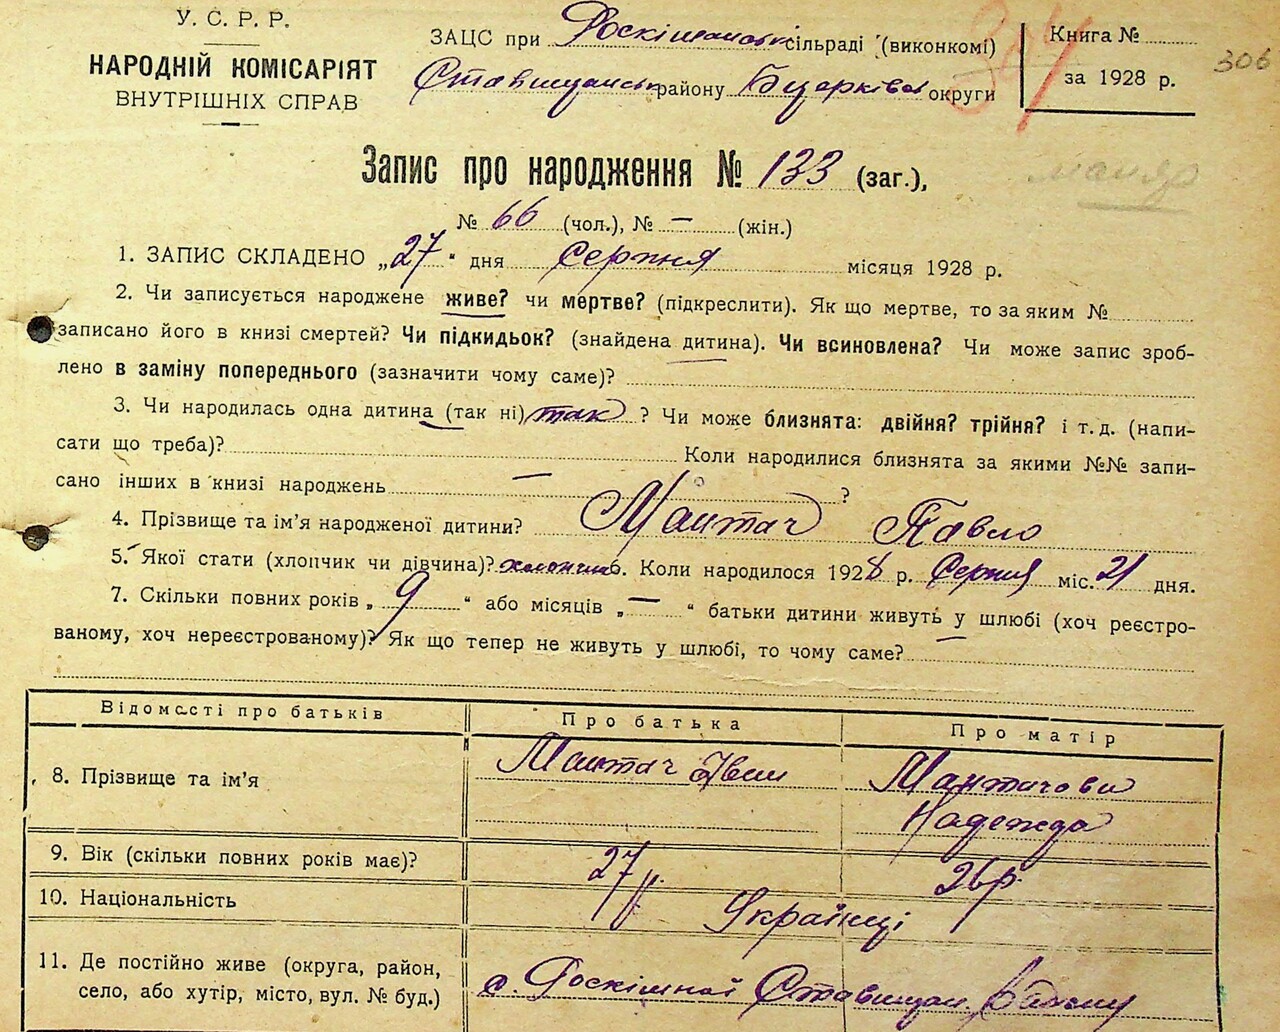 У. С. Р. Р.
НАРОДНІЙ КОМІСАРІЯТ
ВНУТРІШНІХ СПРАВ
ЗАЦС при Роскішнянській сільраді (виконкомі)
Ставищанськ району Бцерківс округи
Книга №
за 1928 р.
306
Запис про народження № 133 (заг.),
№ 66 (чол.), № — (жін.)
1. ЗАПИС СКЛАДЕНО „27“ дня Серпня місяця 1928 р.
2. Чи записується народжене живе? чи мертве? (підкреслити). Як що мертве, то за яким №
записано його в книзі смертей? Чи підкидьок? (знайдена дитина). Чи всиновлена? Чи може запис зроб-
лено в заміну попереднього (зазначити чому саме)?
3. Чи народилась одна дитина (так ні) так ? Чи може близнята: двійня? трійня? і т. д. (напи-
сати що треба)? Коли народилися близнята за якими №№ запи-
сано інших в книзі народжень — ?
4. Прізвище та ім’я народженої дитини? Мантач Павло
5. Якої стати (хлопчик чи дівчина)? хлопчик 6. Коли народилося 1928 р. Серпня міс. 21 дня.
7. Скільки повних років „ 9 “ або місяців „ — “ батьки дитини живуть у шлюбі (хоч реєстро-
ваному, хоч нереєстрованому)? Як що тепер не живуть у шлюбі, то чому саме?
Відомості про батьків Про батька Про матір
8. Прізвище та ім’я Мантач Іван Мантачова
Надежда
9. Вік (скільки повних років має)? 27 р. 26 р.
10. Національність Українці
11. Де постійно живе (округа, район,
село, або хутір, місто, вул. № буд.) с. Роскішної Ставищан. району